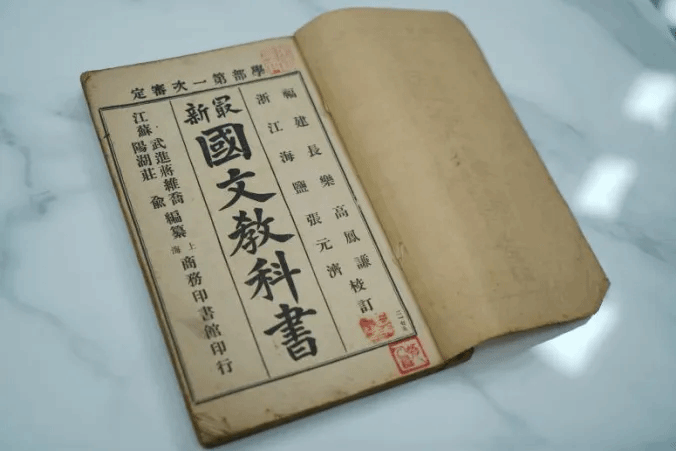 學部第一次審定
福建長樂高鳳謙校訂
浙江海鹽張元濟
最新
國文教科書
武進蔣維喬編纂
江蘇陽湖莊兪
上海商務印書館印行